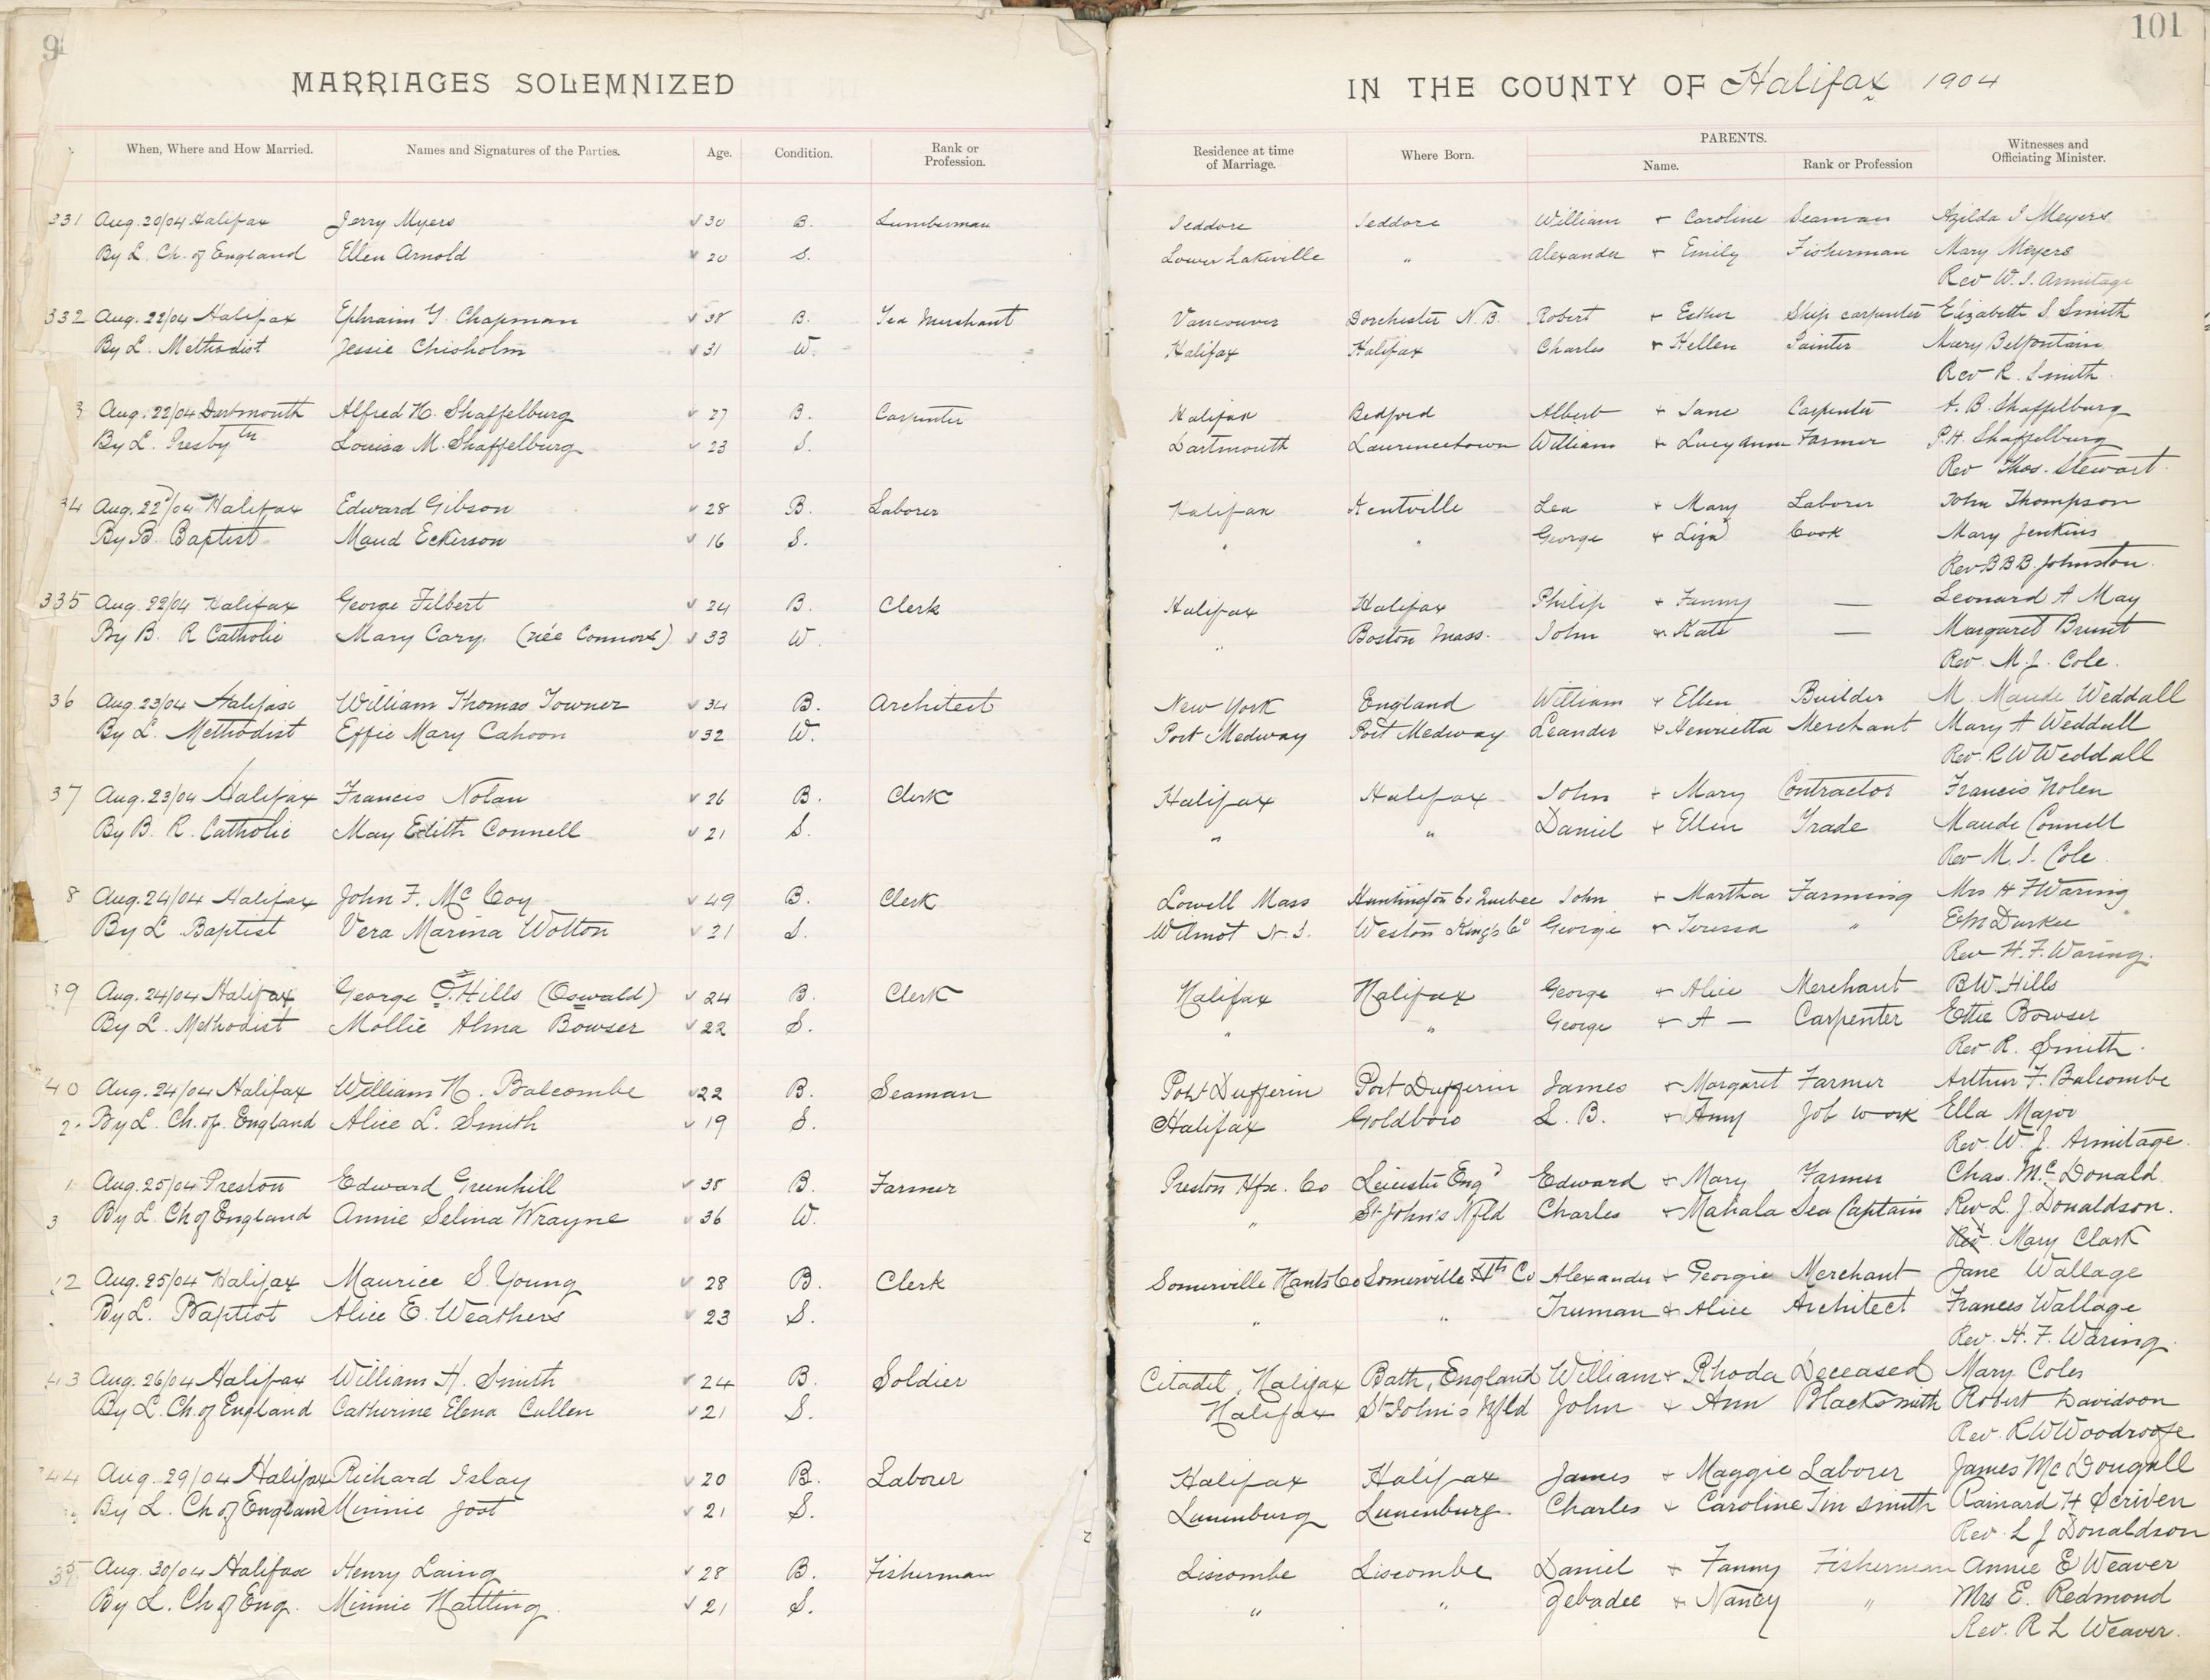 9
101
MARRIAGES SOLEMNIZED IN THE COUNTY OF Halifax 1904
When, Where and How Married. Names and Signatures of the Parties. Age. Condition. Rank or Profession. Residence at time of Marriage. Where Born. PARENTS. Name. Rank or Profession Witnesses and Officiating Minister.
331 Aug. 20/04 Halifax Jerry Myers 30 B. Lumberman Jeddore Jeddore William + Caroline Seaman Azilda J Meyers
By L. Ch. of England Ellen Arnold 20 S. Lower Lakeville " Alexander + Emily Fisherman Mary Meyers
Rev W. J. Armitage
332 Aug. 22/04 Halifax Ephraim G. Chapman 38 B. Tea Merchant Vancouver Dorchester N.B. Robert + Esther Ship carpenter Elizabeth S Smith
By L. Methodist Jessie Chisholm 31 W. Halifax Halifax Charles + Hellen Painter Mary Belfontain
Rev R. Smith
3 Aug. 22/04 Dartmouth Alfred H. Shaffelburg 27 B. Carpenter Halifax Bedford Albert + Jane Carpenter A. B. Shaffelburg
By L. Presbytn Louisa M. Shaffelburg 23 S. Dartmouth Laurencetown William + Lucy Ann Farmer P. H. Shaffelburg
Rev Thos. Stewart
34 Aug. 22/04 Halifax Edward Gibson 28 B. Laborer Halifax Kentville Lea + Mary Laborer John Thompson
By B. Baptist Maud Eckerson 16 S. " " George + Liza Cook Mary Jenkins
Rev B B B. Johnston
335 Aug. 22/04 Halifax George Filbert 24 B. Clerk Halifax Halifax Philip + Fanny — Leonard A May
By B. R Catholic Mary Cary. (née Connors) 33 W. " Boston Mass. John + Kate — Margaret Brunt
Rev. M. J. Cole.
36 Aug. 23/04 Halifax William Thomas Towner 34 B. Architect New York England William + Ellen Builder M. Maude Weddall
By L. Methodist Effie Mary Cahoon 32 W. Port Medway Port Medway Leander + Henrietta Merchant Mary A Weddall
Rev. R W Weddall
37 Aug. 23/04 Halifax Francis Nolan 26 B. Clerk Halifax Halifax John + Mary Contractor Francis Nolen
By B. R. Catholic May Edith Connell 21 S. " " Daniel + Ellen Trade Maude Connell
Rev M. J. Cole
8 Aug. 24/04 Halifax John F. Mc Coy 49 B. Clerk Lowell Mass Huntington Co Quebec John + Martha Farming Mrs H F Waring
By L Baptist Vera Marina Wotton 21 S. Wilmot N S. Weston Kings Co George + Teressa " E M Durkee
Rev H. F. Waring.
39 Aug. 24/04 Halifax George O. Hills (Oswald) 24 B. Clerk Halifax Halifax George + Alice Merchant B W Hills
By L. Methodist Mollie Alma Bowser 22 S. " " George + A — Carpenter Ettie Bowser
Rev. R. Smith.
40 Aug. 24/04 Halifax William H. Balcombe 22 B. Seaman Port Dufferin Port Dufferin James + Margaret Farmer Arthur F. Balcombe
2. By L. Ch. of. England Alice L. Smith 19 S. Halifax Goldboro L. B. + Amy Job work Ella Major
Rev. W. J. Armitage.
1 Aug. 25/04 Preston Edward Greenhill 38 B. Farmer Preston Hfx. Co Leicester Engd Edward + Mary Farmer Chas. Mc Donald
3 By L. Ch of England Annie Selina Wrayne 36 W. " St John's Nfld Charles + Mahala Sea Captain Rev L. J. Donaldson.
Rev. Mary Clark
12 Aug. 25/04 Halifax Maurice S. Young 28 B. Clerk Somerville Hants Co Somerville Hts Co Alexander + Georgie Merchant Jane Wallage
By L. Baptist Alice E. Weathers 23 S. " " Truman + Alice Architect Frances Wallage
Rev. H. F. Waring
43 Aug. 26/04 Halifax William H. Smith 24 B. Soldier Citadel, Halifax Bath, England William + Rhoda Deceased Mary Coles
By L. Ch. of England Catherine Elena Cullen 21 S. Halifax St John's Nfld John + Ann Blacksmith Robert Davidson
Rev. R W Woodroofe
344 Aug. 29/04 Halifax Richard Islay 20 B. Laborer Halifax Halifax James + Maggie Laborer James Mc Dougall
By L. Ch of England Minnie Joot 21 S. Lunenburg Lunenburg. Charles + Caroline Tin smith Rainard H Scriven
Rev. L J Donaldson
35 Aug. 30/04 Halifax Henry Laing 28 B. Fisherman Liscombe Liscombe Daniel + Fanny Fisherman Annie E Weaver
By L. Ch of Eng. Minnie Hattling 21 S. " " Zebadee + Nancy " Mrs E. Redmond
Rev. R L Weaver.